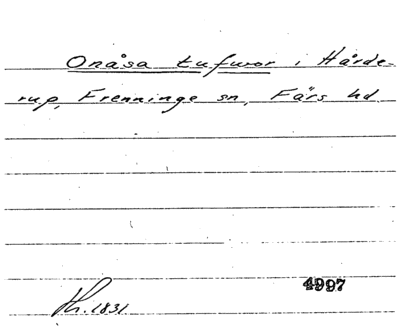 Onåsa tufwor i Hårde-
rup, Frenninge sn, Färs hd
4997
Th. 1831.